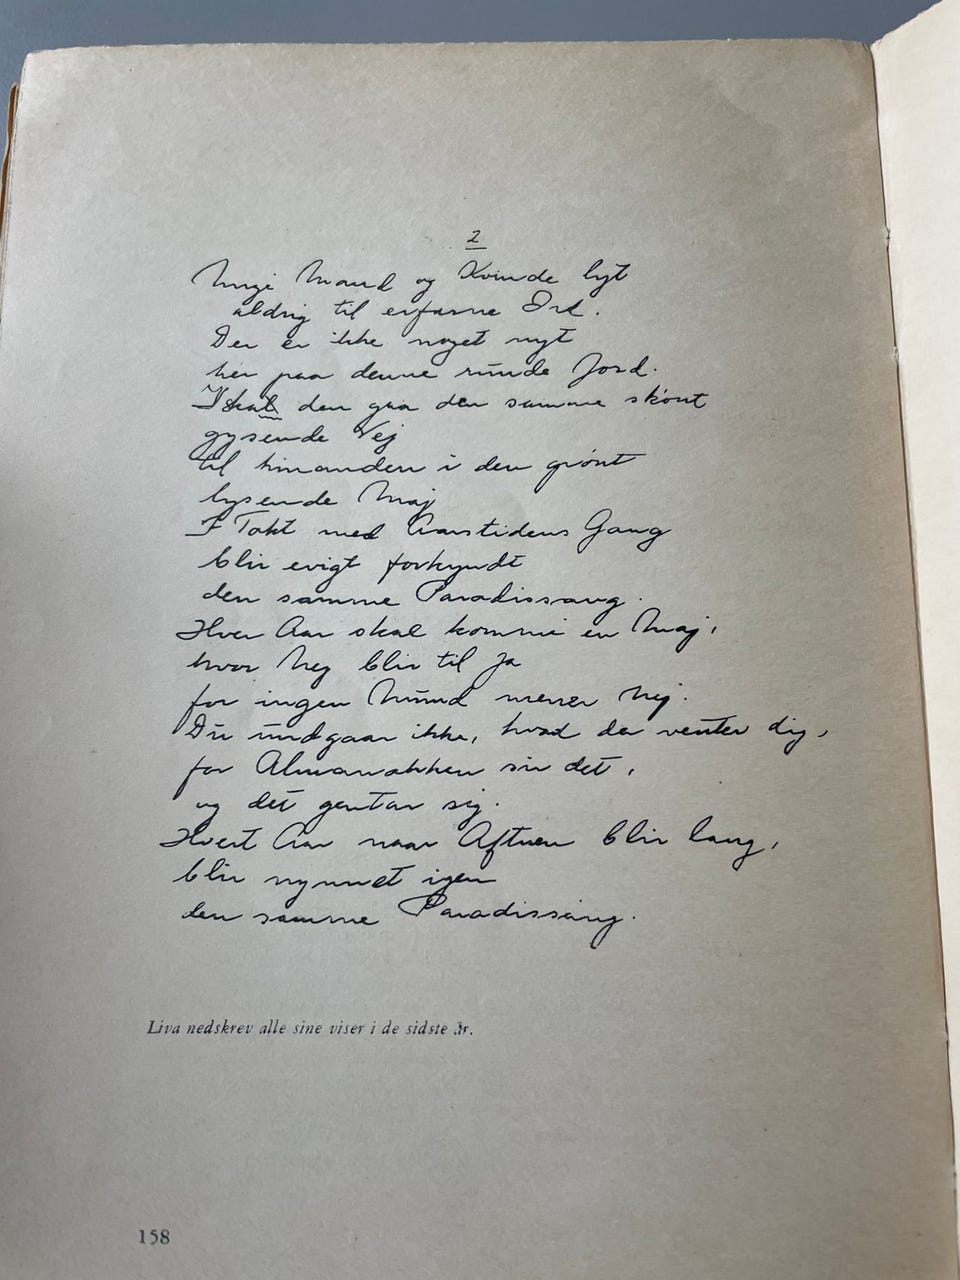 2
Unge Mand og Kvinde lyt
aldrig til erfarne Ord.
Der er ikke noget nyt
her paa denne runde Jord.
I skal den gaa den samme skønt
gysende Vej
til hinanden i den grønt
lysende Maj
I Takt med Aarstidens Gang
blir evigt forkyndt
den samme Paradissang.
Hver Aar skal komme en Maj,
hvor Nej blir til Ja
for ingen Mund mener Nej.
Du undgaar ikke, hvad der venter dig,
for Almanakken sir det,
og det gentar sig.
Hvert Aar naar Aftnen blir lang,
blir nynnet igen
den samme Paradissang.
Liva nedskrev alle sine viser i de sidste år.
158